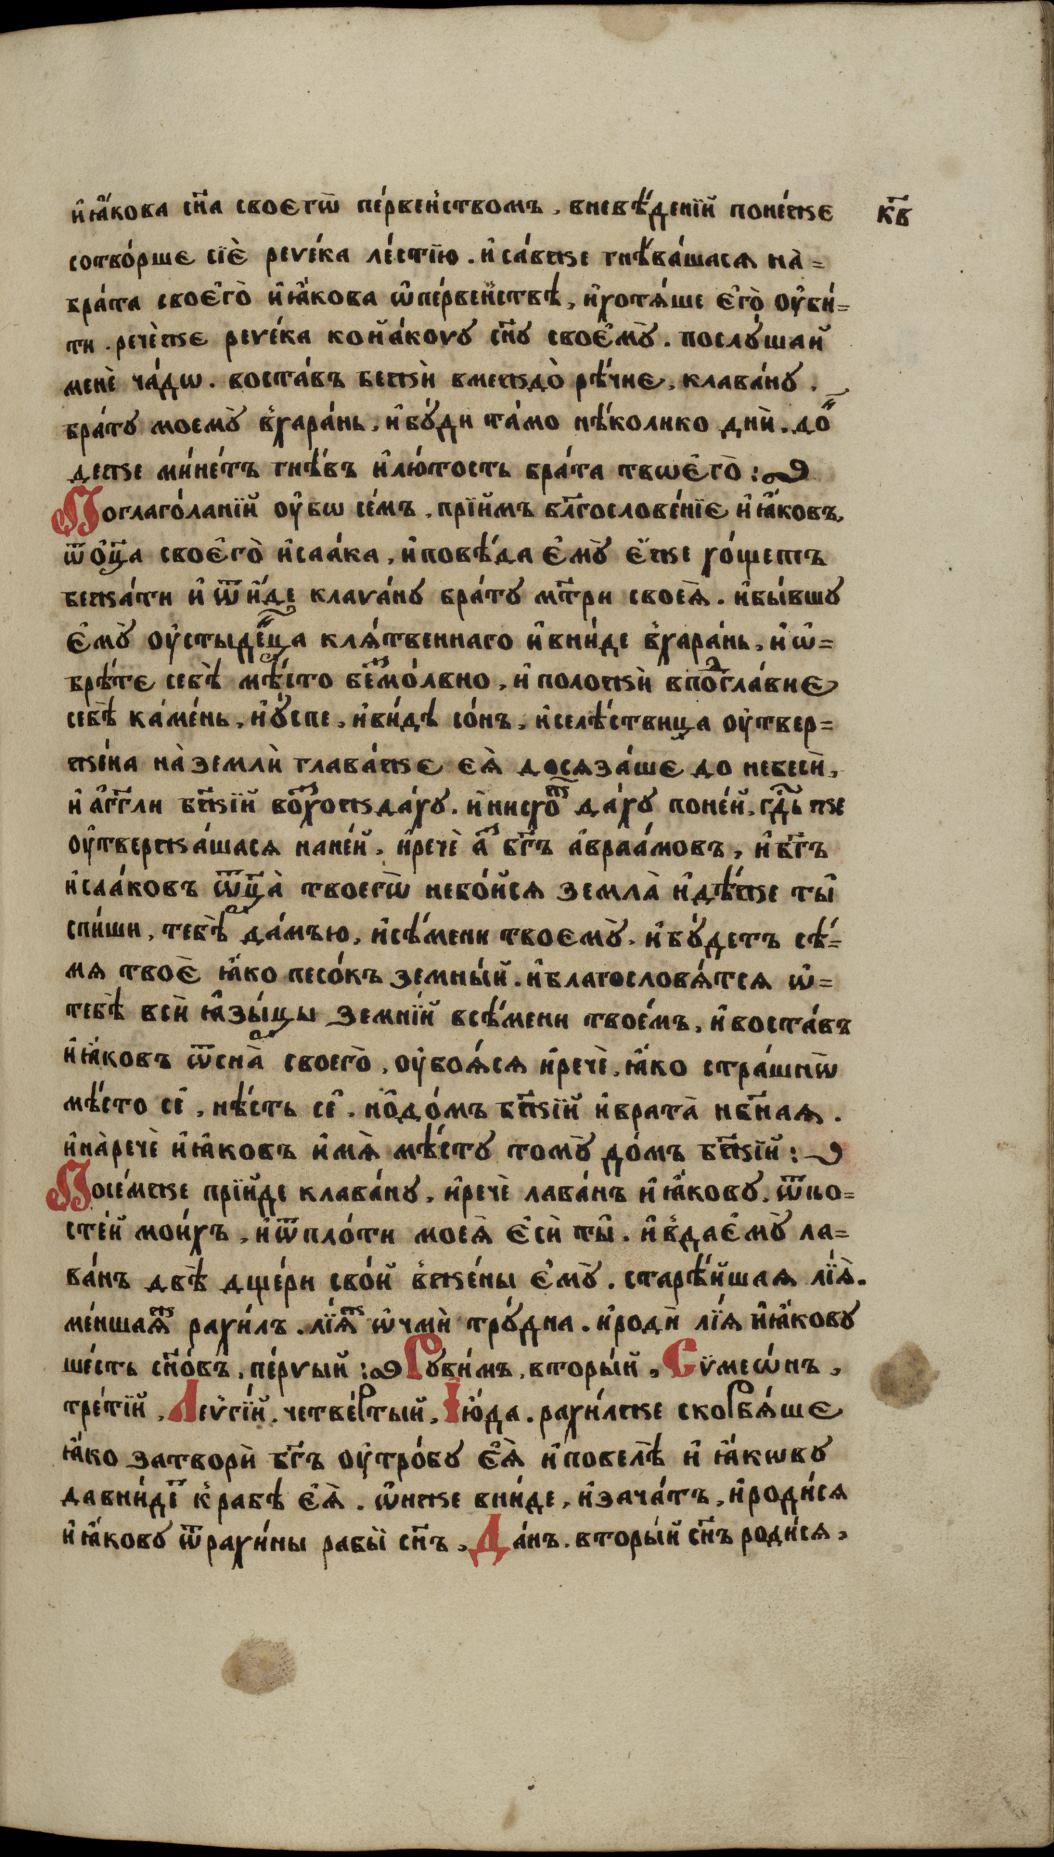 и҆ и҆а́кова сн҃а своєгѡ̀ пе́рвен́ствомъ, вневѣ́денїй поне́же к҃в
сотво́рше сїѐ реѵе́ка ле́стїю. и҆са́вже гнѣ́вашася на̀=
бра́та своєго̀ и҆ и҆а́кова ѡ҆пе́рвен́ствѣ, и҆хотѧ́ше є҆го̀ оу҆би́=
ти. рече́же реѵе́ка ко и҆а́кову сн҃у своє҆мꙋ̀. послꙋ́шай
менѐ ча́дѡ. воста́въ бежѝ вмеждо̀ рѣ́чие, клава́нꙋ.
бра́тꙋ моемꙋ̀ в̾хара́нь, и҆бꙋ́ди та́мо нѣ́колико дни̑. до́н
деже ми́нетъ гнѣ́въ и҆лю́тость бра́та твѡє҆го̀:
Поглаго́ланїй оу҆бѡ се́мъ, прїи́мъ бл҃гослове́нїе и҆ и҆а́ковъ,
ѿо҆ц҃а своє҆го̀ и҆саа́ка, и҆повѣ́да є҆мꙋ̀ є҆́же хо́щетъ
бежа́ти и҆ ѿи́де клава́нꙋ бра́тꙋ мт҃ри своеѧ̀. и҆бы́вшꙋ
є҆мꙋ̀ оу҆стыде́нца клѧ́твеннаго и҆вни́де в̾хара́нь, и҆ ѡ҆=
брѣ́те себѣ̀ мѣ́сто безмо́лвно, и҆ положѝ впо́дгла́вие
себѣ̀ ка́мень, и҆ꙋ́спе, и҆ви́дѣ со́нъ, и҆се лѣ́ствица оу҆твер=
же́на на̀ землѝ глава́же еѧ̀ досяза́ше до небесѝ,
и҆ а҆́гг҃ли бж҃їй возхожда́хꙋ. и҆нисхожда́хꙋ поне́й. гдⷭ҇ь же
оу҆твержа́шася нане́й, и҆речѐ а҆зъ бг҃ъ а҆враа́мовъ, и҆бг҃ъ
и҆саа́ковъ ѿц҃а̀ твоегѡ̀ небо́йся земла̀ и҆дѣ́же ты̑
спи́ши, тебѣ̀ да́мъю, и҆сѣ́мени твоємꙋ̀. и҆бꙋ́детъ сѣ́=
мѧ твоѐ ꙗ҆́ко песо́къ земны́й. и҆благословѧ́тсѧ ѡ҆=
тебѣ̀ всѝ ꙗ҆зы́цы земнїй всѣ́мени твое́мъ, и҆воста́въ
и҆ и҆а́ковъ ѿсна̀ своего̀, оу҆боѧ́сѧ и҆речѐ, ꙗ҆́ко стра́шнѡ
мѣ́сто се̑, нѣ́сть се̑. но̑до́мъ бж҃їй и҆врата̀ нбⷭ҇наѧ.
и҆на̀речѐ и҆ и҆а́ковъ и҆́мѧ мѣ́стꙋ томꙋ̀ до́мъ бж҃їй:
Посе́мже прїи́де клава́нꙋ, и҆речѐ лава́нъ и҆ и҆а́ковꙋ. ѿко=
сте́й мои́хъ, и҆ѿпло́ти моеѧ̀ є҆сѝ ты̑. и҆в̾дає҆мꙋ̀ ла=
ва́нъ двѣ̀ дще́ри сво́й в̾же́ны є҆мꙋ̀. старѣ́йшая лі́ѧ.
ме́ншаѧж рахи́лъ. лі́ѧж ѡ҆чмѝ трꙋ́дна. и҆родѝ лі́ѧ и҆ и҆а́ковꙋ
ше́сть сн҃о́въ, пе́рвый: Рꙋви́мъ, вторы́й, Сѵмеѡ́нъ,
тре́тїй, Леѵгі́й, четве́ртый, І҆ю́да. рахи́лже скорбѧ́ше
ꙗ҆́ко затворѝ бг҃ъ оу҆тро́бꙋ є҆ѧ̀ и҆повелѣ̀ и҆ и҆а́кѡвꙋ
давни́деⷮ к̾рабѣ̀ є҆ѧ̀. ѡ҆́нже вни́де, и҆зача́тъ, и҆роди́сѧ
и҆ и҆а́ковꙋ ѿрахи́ны рабы̀ сн҃ъ, Да́нъ. вторы́й сн҃ъ роди́сѧ,